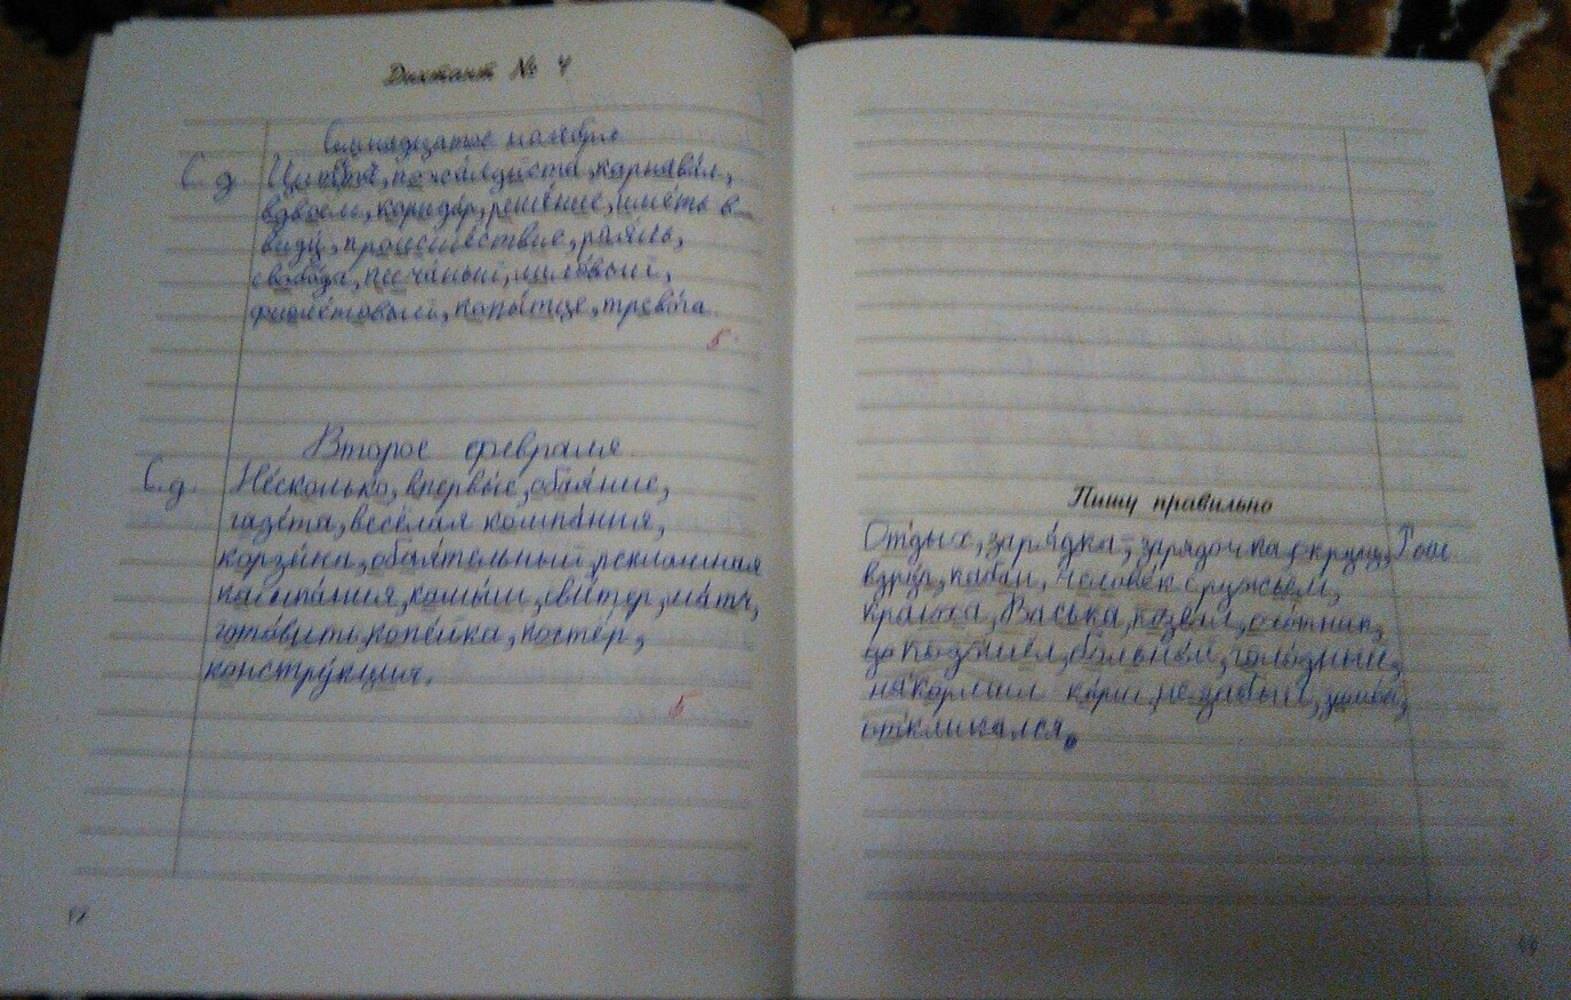 Диктант № 4
Семнадцатое ноября
С.д. пожа́луйста, карнава́л,
вдвоём, коридо́р, реше́ние, име́ть в
виду́, происше́ствие, роя́ль,
свобо́да, песча́ный, лило́вый,
фиоле́товый, копы́тце, трево́га.
5
Второе февраля
С.д. Не́сколько, впервы́е, обая́ние,
газе́та, весёлая компа́ния,
корзи́на, обая́тельный, рекламная
кампа́ния, камы́ш, сви́тер, ма́тч,
гото́вить, копе́йка, костёр,
констру́кция.
5
12
Пишу правильно
О́тдых, заря́дка, зарядочка,
вдру́г, кабан, челове́к с ружьём,
Васька, охо́тник,
подошёл, больно́й, голо́дный,
накормил ко́рм, не забы́л,
откликался.